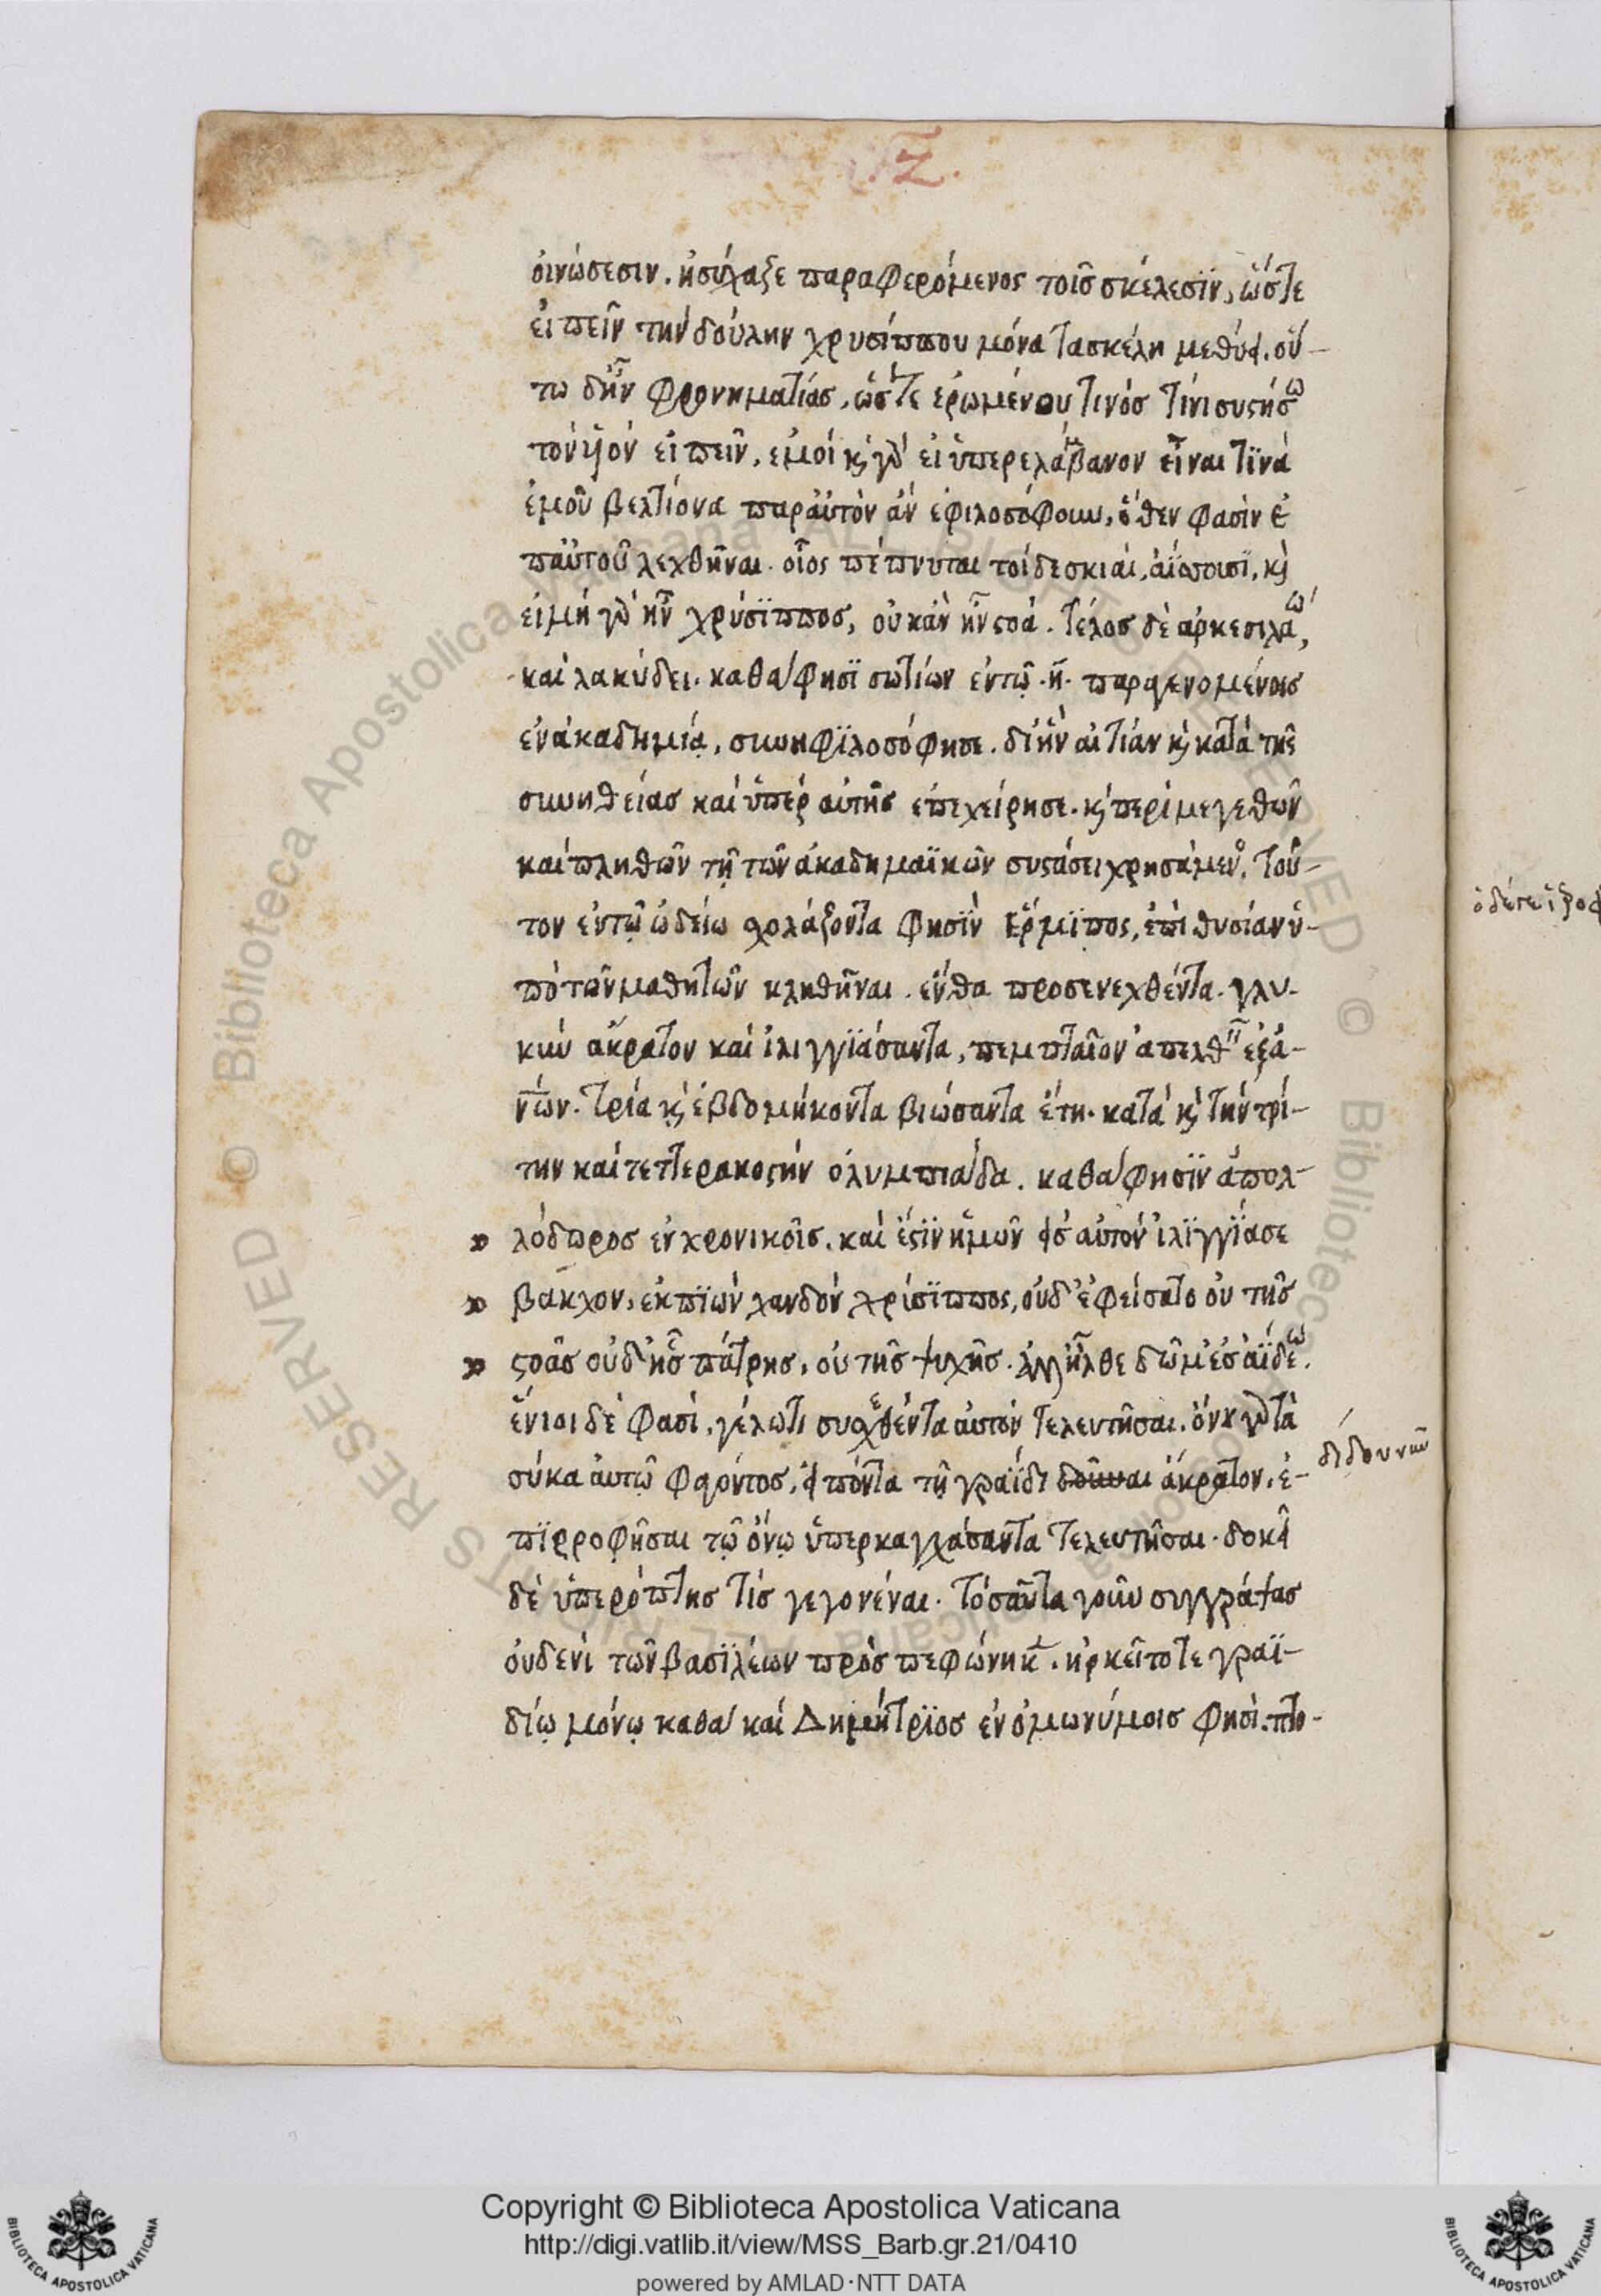 .ζ.
οἰνώσεσιν. ἡσύχαζε παραφερόμενος τοῖς σκέλεσϊν, ὥστε
εἰπεῖν τὴν δούλην χρυσίππου μόνα τὰ σκέλη μεθύει. οὕ-
τω δ' ἦν φρονηματίας, ὥστε ἐρωμένου τινὸς τίνι συστήσω
τὸν ὑϊόν εἰπεῖν, ἐμοί κ γὰρ εἰ ὑπερελάμβανον εἶναι τϊνά
ἐμοῦ βελτίονα παρ' αὐτὸν ἂν ἐφιλοσόφουν, ὅθεν φασὶν ἐ
π' αὐτοῦ λεχθῆναι. οἷος πέπνυται τοὶ δε σκιαὶ, ἀΐσσουσϊ, κ
εἰ μὴ γὰρ ἦν χρύσϊππος, οὐκ ἂν ἦν στοά. τέλος δὲ ἀρκεσιλάω,
καὶ λακύδει. καθά φησϊ σωτίων ἐν τῷ .η. παραγενομένοις
ἐν ἀκαδημίᾳ, συνηφϊλοσόφησε. δι' ἣν αἰτίαν κ κατὰ τῆς
συνηθείας καὶ ὑπὲρ αὐτῆς ἐπεχείρησε. κ περὶ μεγεθῶν
καὶ πληθῶν τῇ τῶν ἀκαδημαϊκῶν συστάσει χρησάμενος. τοῦ-
τον ἐν τῷ ὠδείω σχολάζοντα φησϊν ἕρμϊπος, ἐπὶ θυσίαν ὑ-
πὸ τῶν μαθητῶν κληθῆναι. ἔνθα προσενεχθέντα. γλυ-
κὺν ἄκρατον καὶ ἰλιγγϊάσαντα, πεμπταῖον ἀπελθεῖν ἐξ ἀ-
νῶν. τρία κ ἑβδομήκοντα βιώσαντα ἔτη. κατὰ κ τὴν τρί-
την καὶ τετ͂τερακοστήν ὀλυμπιάδα. καθά φησϊν ἀπολ-
λόδωρος ἐν χρονικοῖς. καὶ ἔστϊν ἡμῶν εἰς αὐτὸν ἰλϊγγϊασε
βάκχον, ἐκπϊὼν χανδὸν χρύσϊππος, οὐδ' ἐφείσατο οὐ τῆς
στοᾶς οὐδ' ἧς πάτρης, οὐ τῆς ψυχῆς. ἀλλ' ἦλθε δῶμ' ἐς ἀΐδεω.
ἔνιοι δὲ φασὶ, γέλωτι συσχεθέντα αὐτὸν τελευτῆσαι. ὄνου γὰρ τὰ
σύκα αὐτῷ φαγόντος, εἰπόντα τῇ γραΐδι δοῦναι ἄκρατον, ἐ-
διδουναι
πϊρροφῆσαι τῷ ὄνῳ ὑπερκαγχάσαντα τελευτῆσαι. δοκεῖ
δὲ ὑπερόπτης τὶς γεγονέναι. τοσαῦτα γοῦν συγγράψας
οὐδενὶ τῶν βασϊλέων πρὸς πεφώνηκε. ἠρκεῖτο τε γραϊ-
δίῳ μόνῳ καθά καὶ Δημήτρϊος ἐν ὁμωνύμοις φησὶ. πτο-
Copyright © Biblioteca Apostolica Vaticana
http://digi.vatlib.it/view/MSS_Barb.gr.21/0410
powered by AMLAD·NTT DATA